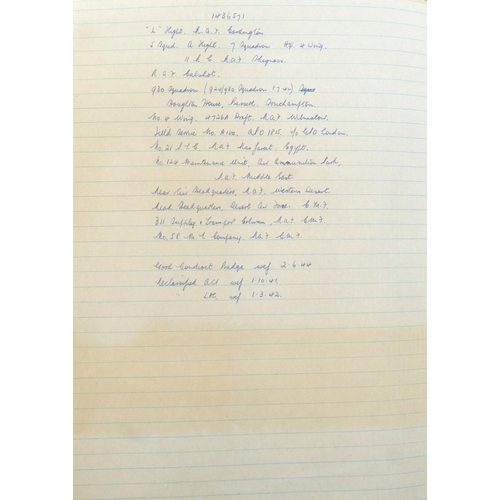 1486571
"L" Flight. R.A.F. Cardington
6 Squad. A Flight. 7 Squadron H.Q. 4 Wing.
11 R.C. R.A.F. Skegness.
R.A.F. Calshot.
930 Squadron
Houghton House, Northampton.
No. 4 Wing. Draft. R.A.F. Wilmslow.
Field Service No. A/O 1815. c/o G.P.O London
No. 21 P.T.C. R.A.F. Kasfareet. Egypt.
No. 124 Maintenance Unit, Air Ammunition Park,
R.A.F. Middle East.
Rear (Air Headquarters, R.A.F. Western Desert.
Head Headquarters, Desert Air Force. C.M.F.
311 Supply & Transport Column, R.A.F. C.M.F.
No. 58 Company. R.A.F. C.M.F.
Good Conduct Badge wef 2.6.44
Reclassified AC1 wef 1.10.41
" LAC wef 1.3.42.